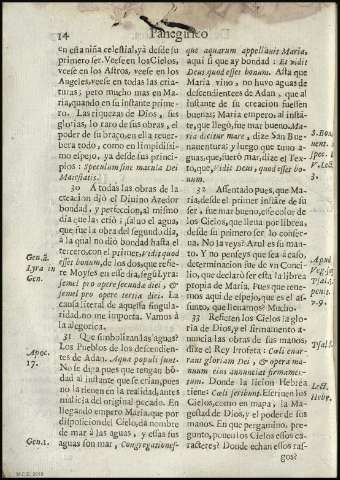 14
Panegirico
en esta niña celestial, yà desde su
primero ser. Veese en los Cielos,
veese en los Astros, veese en los
Angeles, veese en todas las cria-
turas; pero mucho mas en Ma-
ria, quando en su instante prime-
ro. Las riquezas de Dios, sus
glorias, lo raro de sus obras, el
poder de su braço, en ella rever-
bera todo, como en limpidissi-
mo espejo, ya desde sus princi-
pios: Speculum sine macula Dei
Maiestatis.
30 A todas las obras de la
creacion diò el Divino Azedor
bondad, y perfeccion, al mismo
dia que las criò; salvo el agua,
que fue la obra del segundo dia,
à la qual no diò bondad hasta el
tercero, con el primer, vidit quod
esset bonum, de los dos, que refie-
re Moyses en esse dia, segun Lyra:
semel pro opere secundæ diei, &
semel pro opere tertiæ diei. La
causa literal de aquessa singula-
ridad, no me importa. Vamos à
la alegorica.
31 Que simbolizan las aguas?
Los Pueblos de los descendien-
tes de Adan. Aquæ populi sunt.
No se diga pues que tengan bon-
dad al instante que se crian, pues
no la tienen en la realidad, antes
malicia del original pecado. En
llegando empero Maria, que por
disposicion del Cielo, dà nombre
de mar à las aguas, y essas aguas
son mar, Congregationes-
que aquarum appellavit Maria,
aqui si que ay bondad: Et vidit
Deus quod esset bonum. Asta que
Maria vino, no huvo aguas de
descendientes de Adan, que al
instante de su creacion fuessen
buenas; Maria empero, al instan-
te, que llegò, fue mar bueno. Ma-
ria dicitur mare, dize San Bue-
naventura; y luego que tuvo a-
guas, que fuerò mar, dize el Tex-
to, que, Vidit Deus, quod esset bo-
num.
32 Assentado pues, que Ma-
ria, desde el primer instãte de su
ser, fue mar bueno, esse color de
los Cielos, que llena por librea,
desde su primer ser lo conserva.
No la veys? Azul es su man-
to. Y no penseys que sea acaso,
determinacion fue de vn Conci-
lio, que declarò ser esta la librea
propia de Maria. Pues que tene-
mos aqui de espejo, que es el as-
sunto, que llevamos? Mucho.
33 Refieren los Cielos la glo-
ria de Dios, y el firmamento a-
nuncia las obras de sus manos;
dize el Rey Profeta: Cœli enar-
rant gloriam Dei, & opera ma-
nuum eius annuntiat firmamen-
tum. Donde la licion Hebrea
tiene: Cœli scribunt. Escriven los
Cielos, como en mapa, la Ma-
gestad de Dios, y el poder de sus
manos. En que pergamino, pre-
gunto, ponen los Cielos essos ca-
racteres? Donde echan essos ras-
gos?
Gen. 2.
Lyra in
Gen.
Apoc.
17.
Gen. 1.